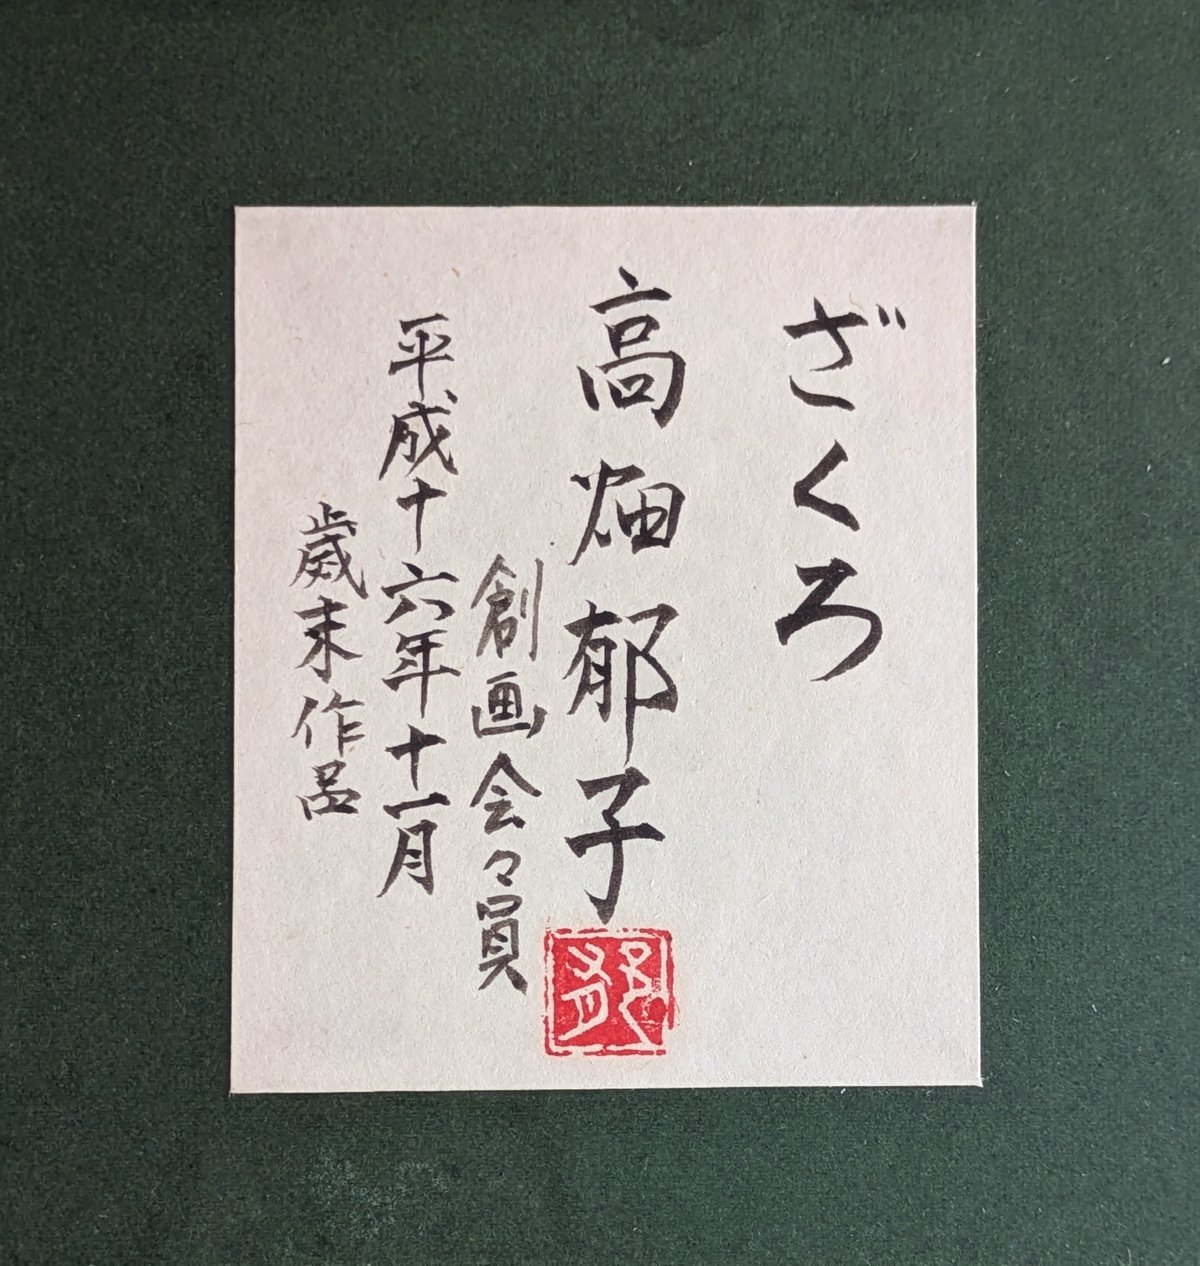 ざくろ
高畑郁子
創画会々員
平成十六年十一月
歳末作品
郁